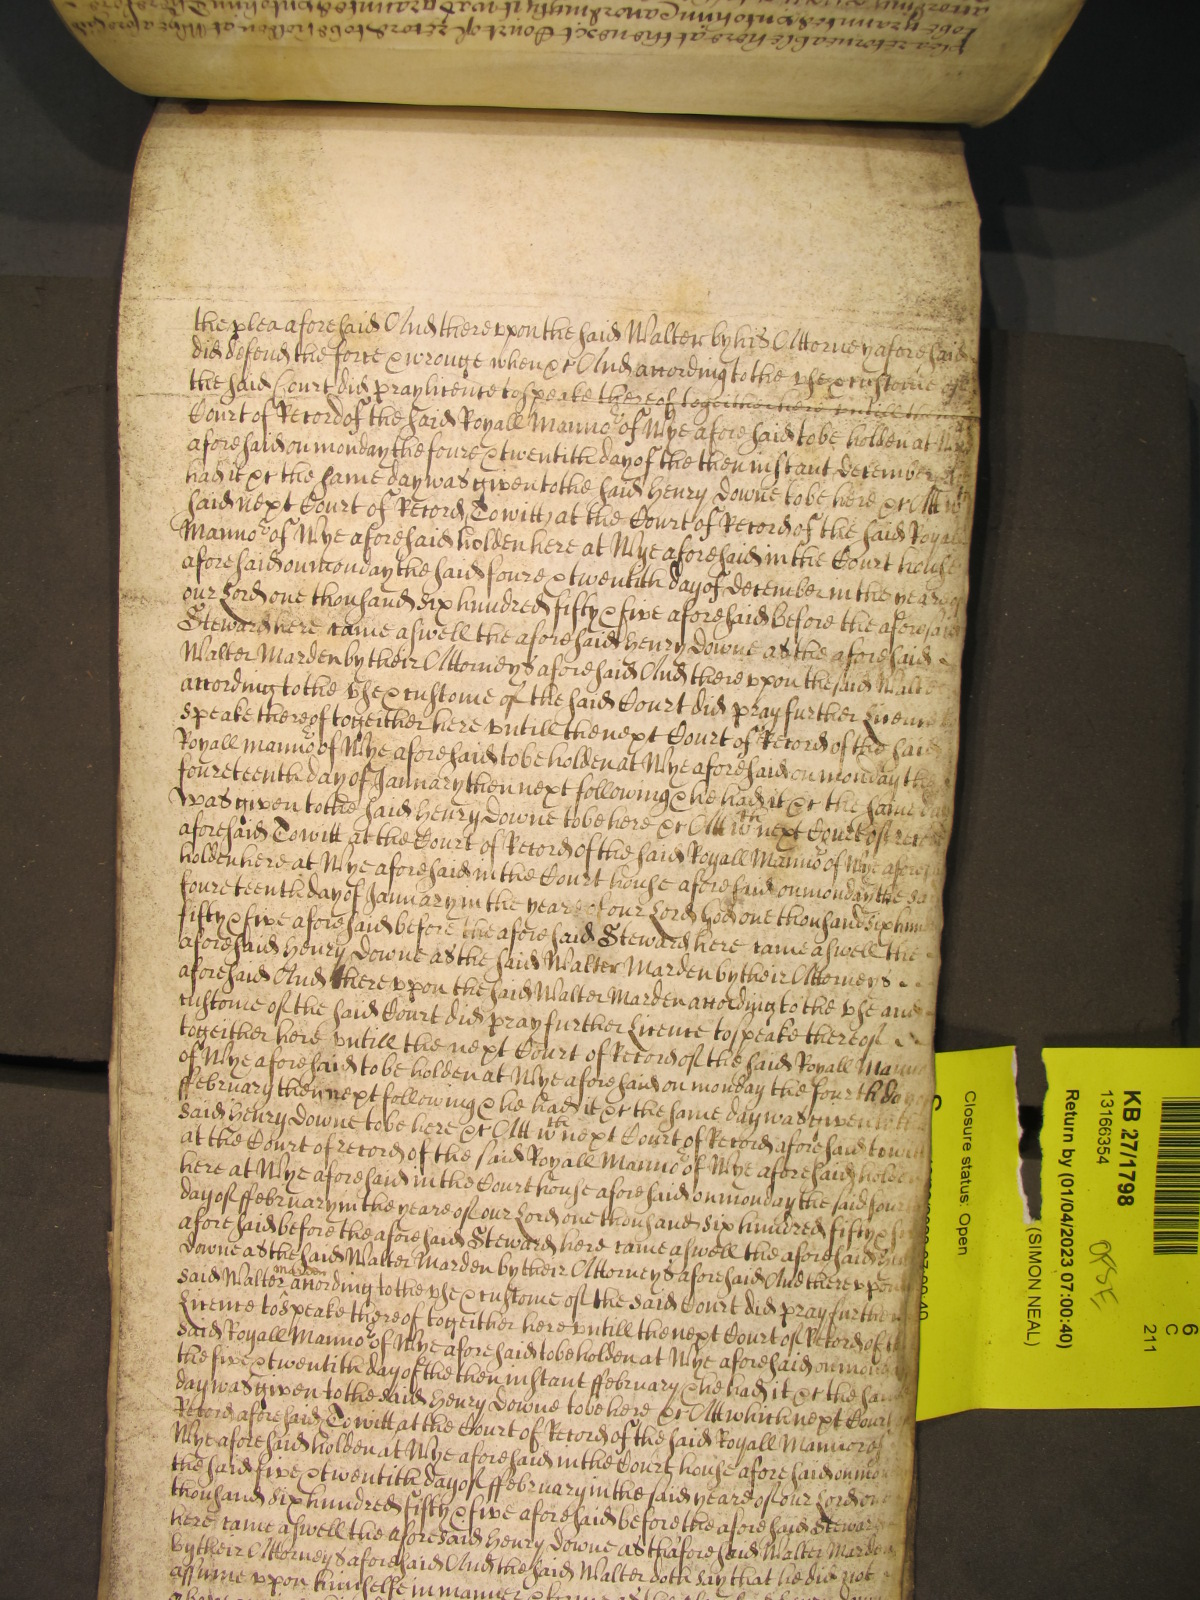 the plea aforesaid And thereupon the said Walter by his Attorney aforesaid
did defend the force & wronge when &c And according to the use & custome of
the said Court did pray licence to speake thereof together here untill the next
Court of Record of the said Royall Mannor of Wye aforesaid to be holden at Wye
aforesaid on monday the foure & twentith day of the then instant december
had it &c the same day was given to the said Henry Downe to be here &c Att wch
said next Court of Record, To witt, at the Court of Record of the said Royall
Mannor of Wye aforesaid holden here at Wye aforesaid in the Court house
aforesaid on monday the said foure & twentith day of december in the yeare of
our Lord one thousand six hundred fifty & five aforesaid before the aforesaid
Steward here came aswell the aforesaid Henry Downe as the aforesaid
Walter Marden by their Attorneys aforesaid And there upon the said Walter
according to the use & custome of the said Court did pray further Licence to
speake thereof togeither here untill the next Court of Record of the said
Royall mannor of Wye aforesaid to be holden at Wye aforesaid on monday the
foureteenth day of January then next following & he had it &c the same day
was given to the said Henry Downe to be here &c Att wch next Court of record
aforesaid To witt at the Court of Record of the said Royall Mannor of Wye aforesaid
holden here at Wye aforesaid in the Court house aforesaid on monday the said
foureteenth day of January in the yeare of our Lord God one thousand six hundred
fifty & five aforesaid before the aforesaid Steward here came aswell the
aforesaid Henry Downe as the said Walter Marden by their Attorneys
aforesaid And there upon the said Walter Marden according to the use and
custome of the said Court did pray further Licence to speake thereof
togeither here untill the next Court of Record of the said Royall Mannor
of Wye aforesaid to be holden at Wye aforesaid on monday the fourth day of
ffebruary then next following & he had it &c the same day was given to the
said Henry Downe to be here &c Att wth next Court of Record aforesaid to witt
at the Court of records of the said Royall Mannor of Wye aforesaid holden
here at Wye aforesaid in the Court house aforesaid on monday the said fourth
day of ffebruary in the yeare of our Lord one thousand six hundred fifty & five
aforesaid before the aforesaid Steward here came aswell the aforesaid Henry
Downe as the said Walter Marden by their Attorneys aforesaid And there upon
said Walter Marden according to the use & custome of the said Court did pray further
Licence to speake thereof togeither here untill the next Court of Record of the
said Royall Mannor of Wye aforesaid to be holden at Wye aforesaid on monday
the five & twentith day of the then instant ffebruary & he had it &c the same
day was given to the said Henry Downe to be here &c Att which next Court
Record aforesaid To witt at the Court of Record of the said Royall Mannor of
Wye aforesaid holden at Wye aforesaid in the Court house aforesaid on monday
the said five & twentith day of ffebruary in the said yeare of our Lord one
thousand six hundred fifty & five aforesaid before the aforesaid Steward
here came aswell the aforesaid Henry Downe as thaforesaid Walter Marden
by their Attorneys aforesaid And the said Walter doth say that he did not
assume upon himselfe in manner & forme as the
KB 27/1798
13166354
Return by (01/04/2023 07:00:40)
(SIMON NEAL)
Closure status: Open
6
C
211